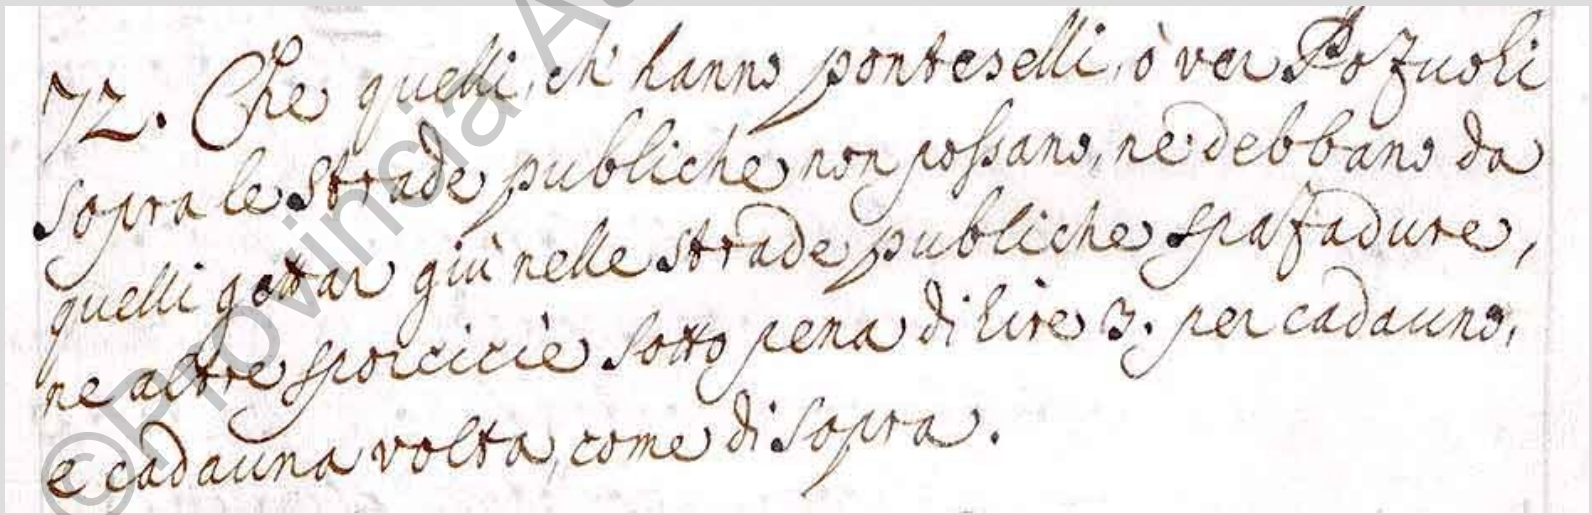 72. Che quelli, ch' hanno ponteselli, ò ver Pozuoli
sopra le strade publiche non possano, ne debbano da
quelli gettar giù nelle strade publiche spazadure,
ne altre sporcicie sotto pena di lire 3. per cadauno,
e cadauna volta, come di sopra.
©Provincia Au